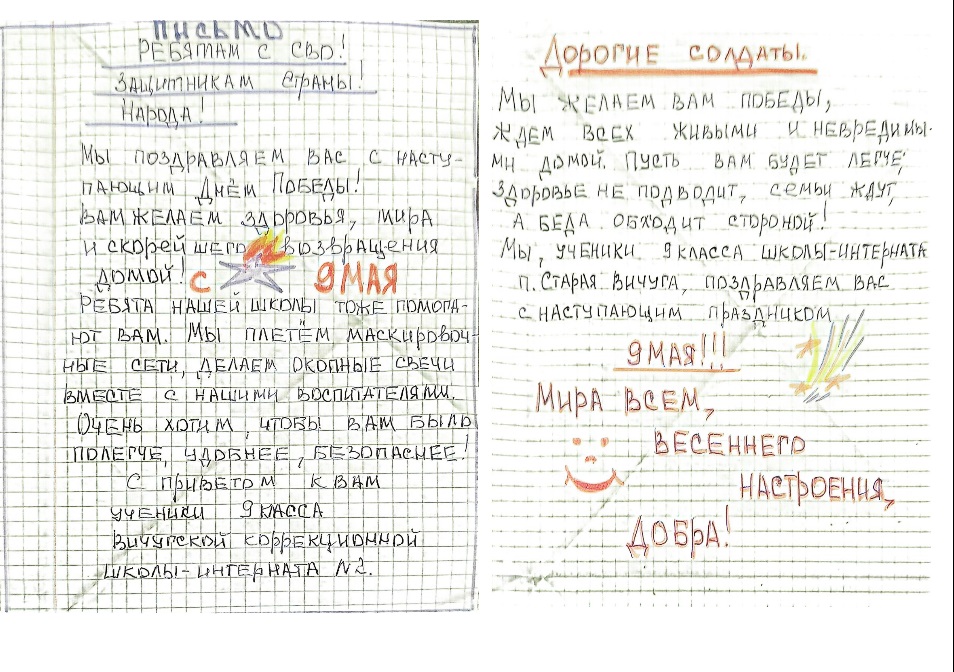 ПИСЬМО
РЕБЯТАМ С СВО!
ЗАЩИТНИКАМ СТРАНЫ!
НАРОДА!
МЫ ПОЗДРАВЛЯЕМ ВАС С НАСТУ-
ПАЮЩИМ ДНЁМ ПОБЕДЫ!
ВАМ ЖЕЛАЕМ ЗДОРОВЬЯ, МИРА
И СКОРЕЙШЕГО ВОЗВРАЩЕНИЯ
ДОМОЙ! С 9 МАЯ
РЕБЯТА НАШЕЙ ШКОЛЫ ТОЖЕ ПОМОГА-
ЮТ ВАМ. МЫ ПЛЕТЁМ МАСКИРОВОЧ-
НЫЕ СЕТИ, ДЕЛАЕМ ОКОПНЫЕ СВЕЧИ
ВМЕСТЕ С НАШИМИ ВОСПИТАТЕЛЯМИ.
ОЧЕНЬ ХОТИМ, ЧТОБЫ ВАМ БЫЛО
ПОЛЕГЧЕ, УДОБНЕЕ, БЕЗОПАСНЕЕ!
С ПРИВЕТОМ К ВАМ
УЧЕНИКИ 9 КЛАССА
ВИЧУГСКОЙ КОРРЕКЦИОННОЙ
ШКОЛЫ-ИНТЕРНАТА №2.
ДОРОГИЕ СОЛДАТЫ.
МЫ ЖЕЛАЕМ ВАМ ПОБЕДЫ,
ЖДЕМ ВСЕХ ЖИВЫМИ И НЕВРЕДИМЫ-
МИ ДОМОЙ. ПУСТЬ ВАМ БУДЕТ ЛЕГЧЕ,
ЗДОРОВЬЕ НЕ ПОДВОДИТ, СЕМЬИ ЖДУТ,
А БЕДА ОБХОДИТ СТОРОНОЙ!
МЫ, УЧЕНИКИ 9 КЛАССА ШКОЛЫ-ИНТЕРНАТА
П. СТАРАЯ ВИЧУГА, ПОЗДРАВЛЯЕМ ВАС
С НАСТУПАЮЩИМ ПРАЗДНИКОМ
9 МАЯ!!!
МИРА ВСЕМ,
ВЕСЕННЕГО
НАСТРОЕНИЯ,
ДОБРА!